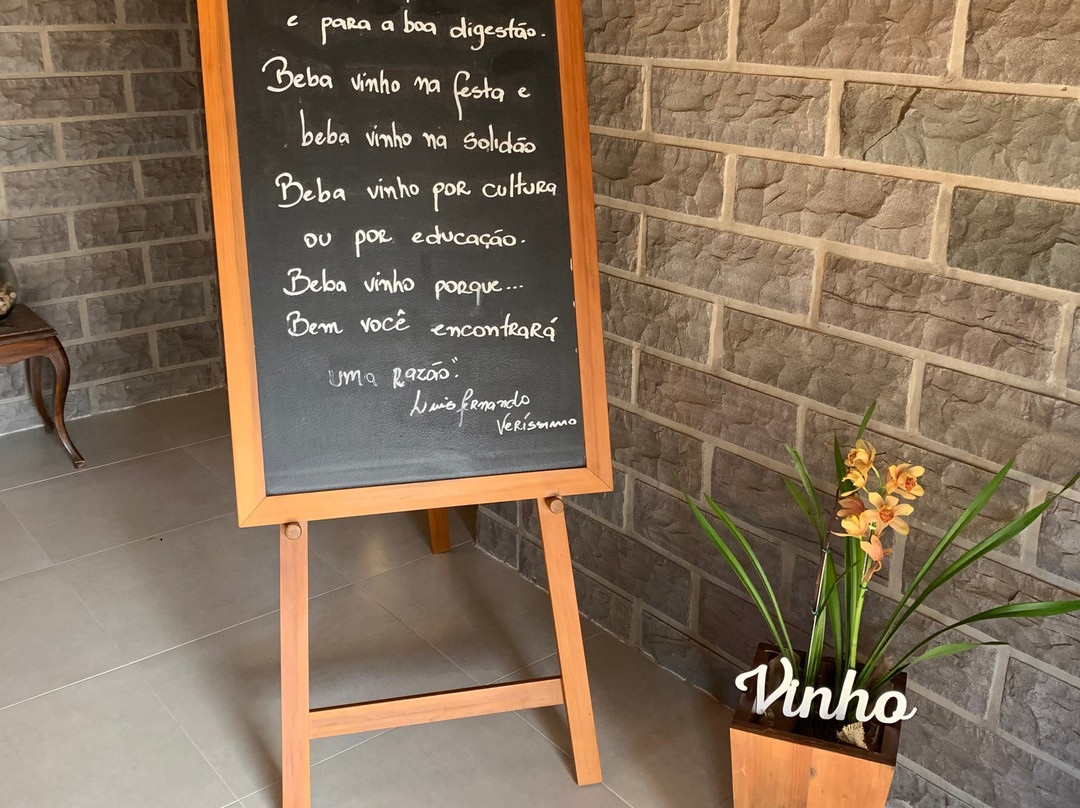 e para a boa digestão.
Beba vinho na festa e
beba vinho na solidão
Beba vinho por cultura
ou por educação.
Beba vinho porque...
Bem você encontrará
uma razão".
Luis fernando
Veríssimo
Vinho